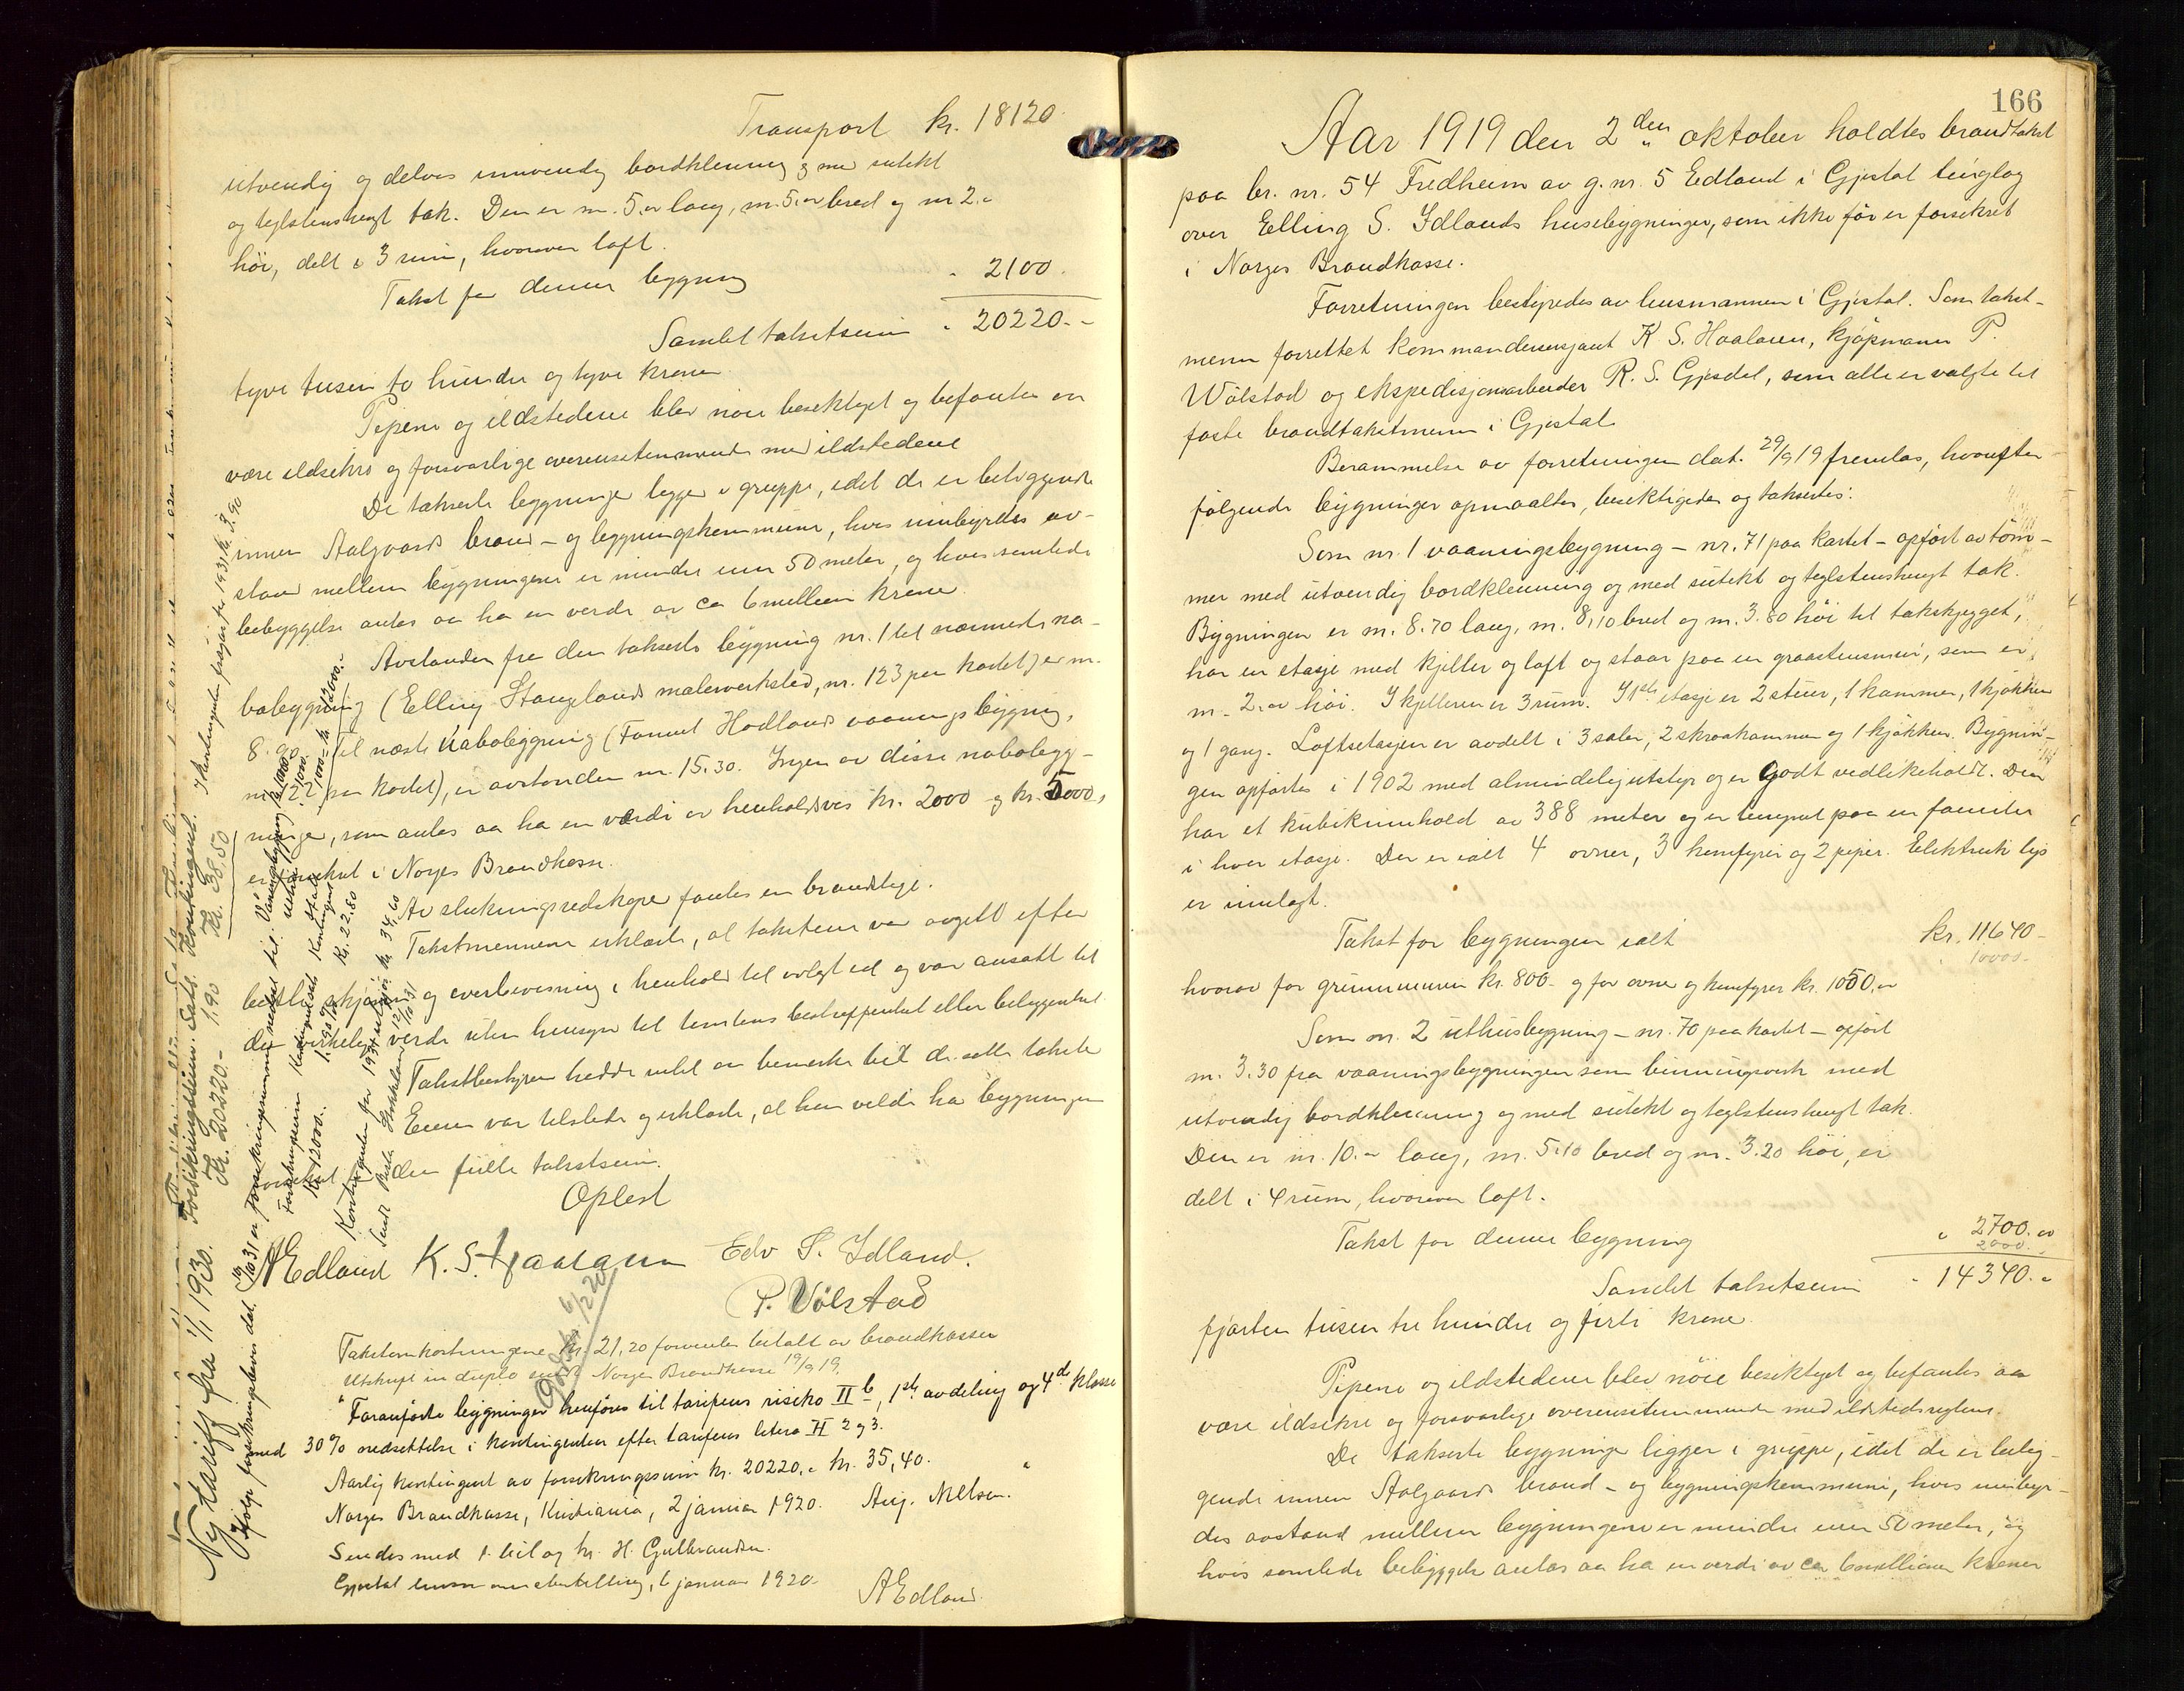 Transport kr. 18120.
utvendig og delvis innvendig bordklenning og med sutekt
og teglstenshengt tak. Den er m. 5.00 lang, m. 5.00 bred og m 2.
høi, delt i 3 rum, hvorover loft.
Takst for denne bygning " 2100.
Samlet takstsum " 20220.-
tyve tusen to hundre og tyve kroner.
Pipene og ildstedene blev nøie besiktiget og befantes aa
være ildsikre og forsvarlige overensstemmende med ildstedene
De takserte bygninger ligger i gruppe, idet de er beliggende
innen Aalgaards brand- og bygningskommune, hvis innbyrdes av-
stand mellem bygningene er mindre enn 50 meter, og hvis samlede
bebyggelse antas aa ha en verdi av ca 6 millioner kroner.
Avstanden fra den takserte bygning nr. 1 til nærmeste na-
bobygning (Elling Stangelands malerverksted, nr. 123 paa kartet) er m.
8.90. Til næste nabobygning ( Hodlands vaaningsbygning,
nr. 122 paa kartet), er avstanden m. 15.30. Ingen av disse nabobygg-
ninger, som antas aa ha en værdi av henholdsvis kr. 2000 og kr. 5000,
er forsikret i Norges Brandkasse.
Av slukningsredskaper fantes en brandstige.
Takstmennene erklærte, at taksten var avgitt efter
beste skjønn og overbevisning i henhold til avlagt ed og var ansatt til
den virkelige verdi uten hensyn til tomtens beskaffenhet eller beliggenhet.
Takstbestyreren hadde intet aa bemerke til de satte takster
Eieren var tilstede og erklærte, at han vilde ha bygningen
forsikret for den fulle takstsum.
Oplest
AEdland K. S. Haaland Edv S. Idland.
P. Vølstad
Godkj. 6/1 20
Takstomkostningene kr. 21,20 forventes betalt av brandkassen
Utskrift in duplo sendt Norges Brandkasse 19/9 19.
"Foranførte bygninger henføres til tariffens risiko II b, 1ste avdeling og 4de klasse
med 30% nedsettelse i kontingenten efter tariffens litera H 2 og 3.
Aarlig kontingent av forsikringssum kr. 20220.- kr. 35,40.
Norges Brandkasse, Kristiania, 2 januar 1920. Aug. Nilsen."
Sendes med 1 bil og hr. H. Gulbrandsen.
Gjestal lensmannsbestilling, 6 januar 1920.
AEdland.
Ny tariff fra 1/1 1930. Forsikringssum. Sats. Kontingent.
Kr. 20220.- 1.90 Kr. 38.50
Ifølge forsikringsbevis dat. 10/10 31 er forsikringssummen nedsat til: Vaaningsbygning kr. 11000.-
Uthus " 1000.- = kr. 12000.-
Forsikringssum Kontingentsats Kontingent
Kr. 12000. 1.90 % Kr. 22.80
Kontingenten for 1931 utgjør kr. 34,60
Kontingenten fragaar for 1931 kr. 3.90
166
Aar 1919 den 2den oktober holdtes brandtakst
paa br. nr. 54 Fredheim av g. nr. 5 Edland i Gjestal tinglag
over Elling S. Idlands husebygninger, som ikke før er forsikret
i Norges Brandkasse.
Forretningen bestyredes av lensmannen i Gjestal. Som takst-
menn forrettet kommandersersjant K S. Haaland, kjøpmann P.
Wølstad og ekspedisjonsarbeider R. S. Gjesdal, som alle er valgte til
faste brandtakstmenn i Gjestal.
Berammelse av forretningen dat. 29/9 19 fremlas, hvorefter
følgende bygninger opmaaltes, besiktigedes og taksertes:
Som nr. 1 vaaningsbygning - nr. 71 paa kartet - opført av tøm-
mer med utvendig bordklenning og med sutekt og teglstenshengt tak.
Bygningen er m. 8.70 lang, m. 8,10 bred og m. 3.80 høi til takskjegget,
har en etasje med kjeller og loft og staar paa en graastensmur, som er
m. 2.00 høi. I kjelleren er 3 rum. I 1ste etasje er 2 stuer, 1 kammer, 1 kjøkken
og 1 gang. Loftsetasjen er avdelt i 3 saler, 2 skraakammer og 1 kjøkken. Bygnin-
gen opførtes i 1902 med almindelig utstyr og er godt vedlikeholdt. Den
har et kubikinnhold av 388 meter og er beregnet paa en familie
i hver etasje. Der er ialt 4 ovner, 3 komfyrer og 2 piper. Elektrisk lys
er innlagt.
Takst for bygningen ialt kr. 11640-
10000.-
hvorav for grunnmuren kr. 800- og for ovner og komfyrer kr. 1050.00
Som nr. 2 uthusbygning - nr. 70 paa kartet - opført
m. 3.30 fra vaaningsbygningen som binningsverk med
utvendig bordklenning og med sutekt og teglstenshengt tak.
Den er m. 10.00 lang, m. 5.10 bred og m. 3.20 høi, er
delt i 4 rum, hvorover loft.
Takst for denne bygning " 2700.00
2000.-
Samlet takstsum " 14340.-
fjorten tusen tre hundre og firti kroner.
Pipene og ildstedene blev nøie besiktiget og befantes aa
være ildsikre og forsvarlige overensstemmende med ildstedsreglene.
De takserte bygninger ligger i gruppe, idet de er belig-
gende innen Aalgaards brand- og bygningskommune, hvis innbyr-
des avstand mellem bygningene er mindre enn 50 meter, og
hvis samlede bebyggelse antas aa ha en verdi av ca 6 millioner kroner